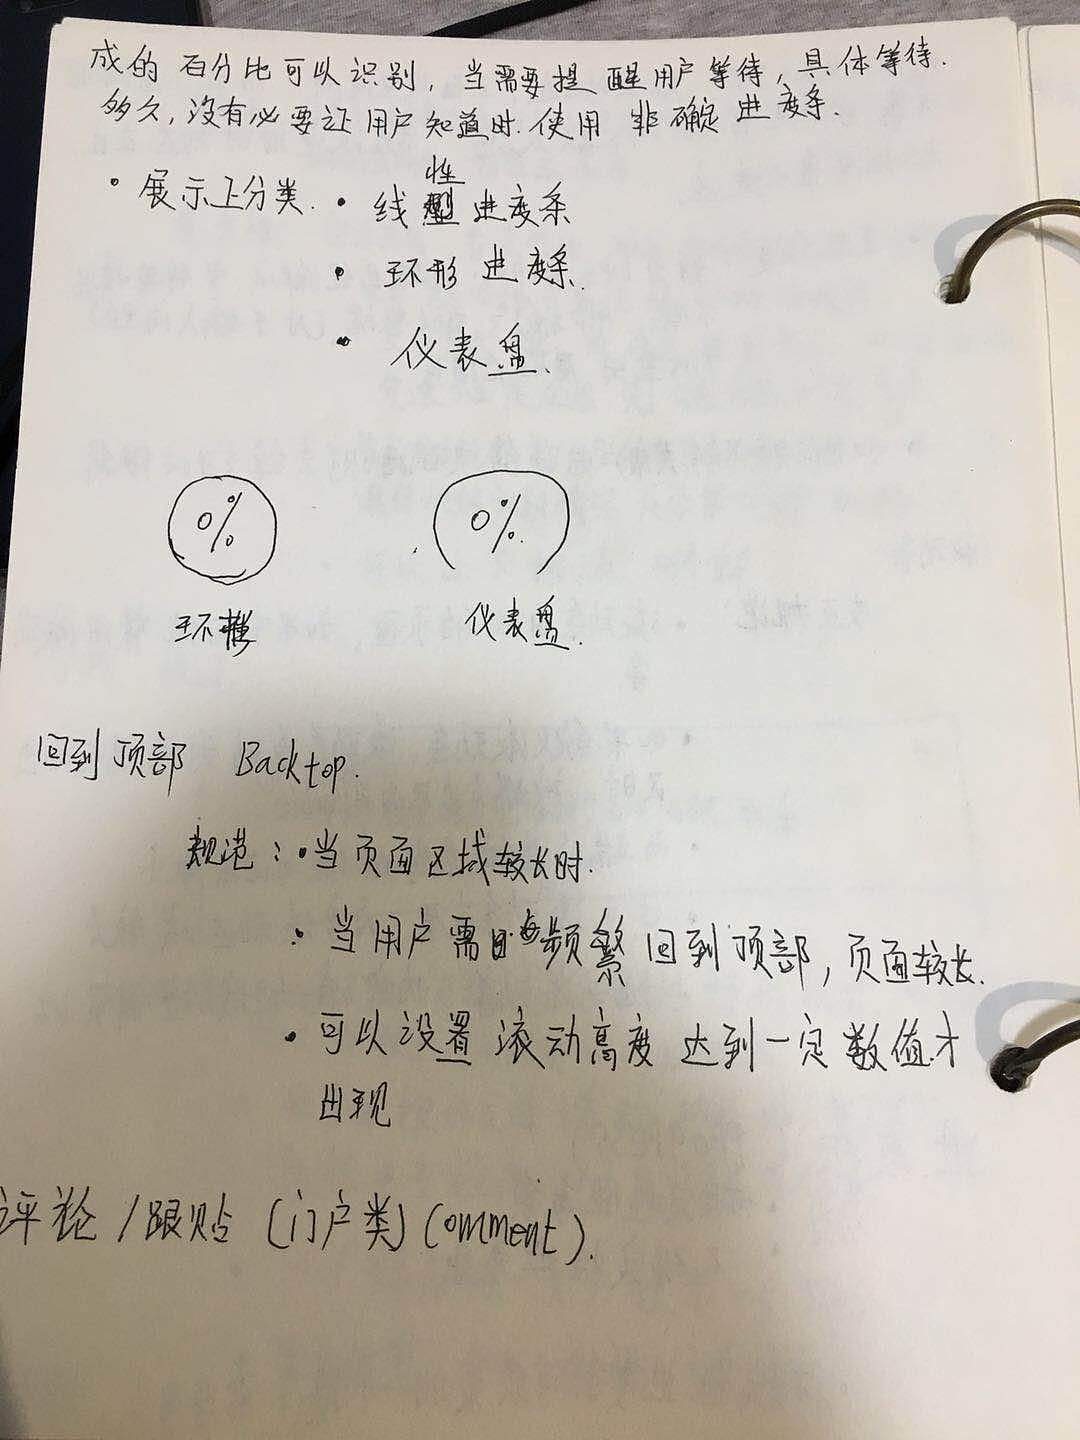 成的 百分比可以识别，当需要提醒用户等待，具体等待.
多久，没有必要让用户知道时.使用 非确定 进度条.
• 展示上分类. • 线性 进度条
• 环形 进度条.
• 仪表盘.
0% 0%
环形 仪表盘.
回到顶部 Backtop.
规范：•当页面区域较长时.
• 当用户需 频繁 回到顶部，页面较长.
• 可以设置 滚动高度 达到一定数值才
出现
评论/跟贴 (门户类) (omment).